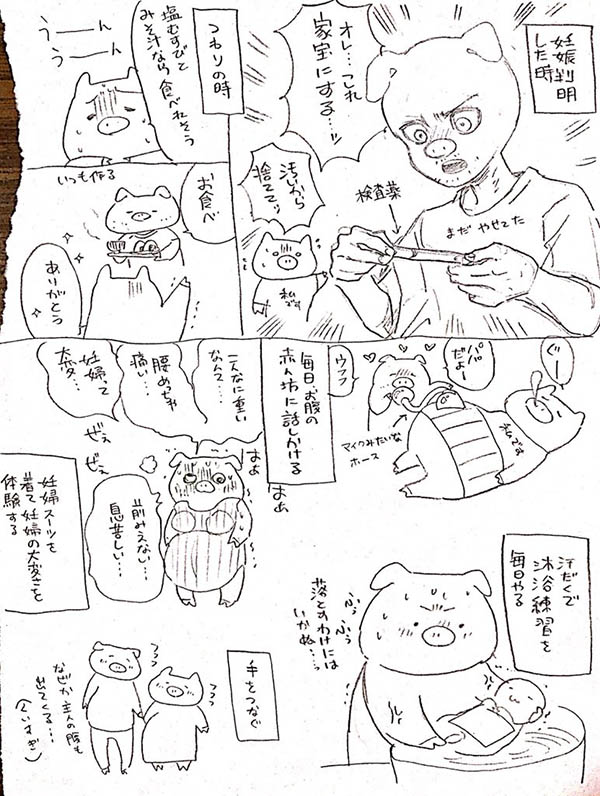 妊娠判明
した時
オレ…これ
家宝にする…ッ
検査薬
まだやせてた
汚いから
捨ててッ
私です
つわりの時
塩むすびと
みそ汁なら食べれそう
うーーん
うーーん
いつも作る
お食べ
ありがとう
ぐー
パパ
だよー
ウフフ
私です
マイクみたいな
ホース
毎日、お腹の
赤ん坊に話しかける
こんなに重い
なんて…
腰めっちゃ
痛い…
妊婦って
大変…
ぜぇ
ぜぇ
はぁ
はぁ
前みえない…
息苦しい…
妊婦スーツを
着て妊婦の大変さを
体験する
汗だくで
沐浴練習を
毎日やる
ふぅ
ふぅ
落とすわけには
いかぬ…っ
手をつなぐ
フフ
フフ
なぜか主人の腹も
出てくる…
(食いすぎ)